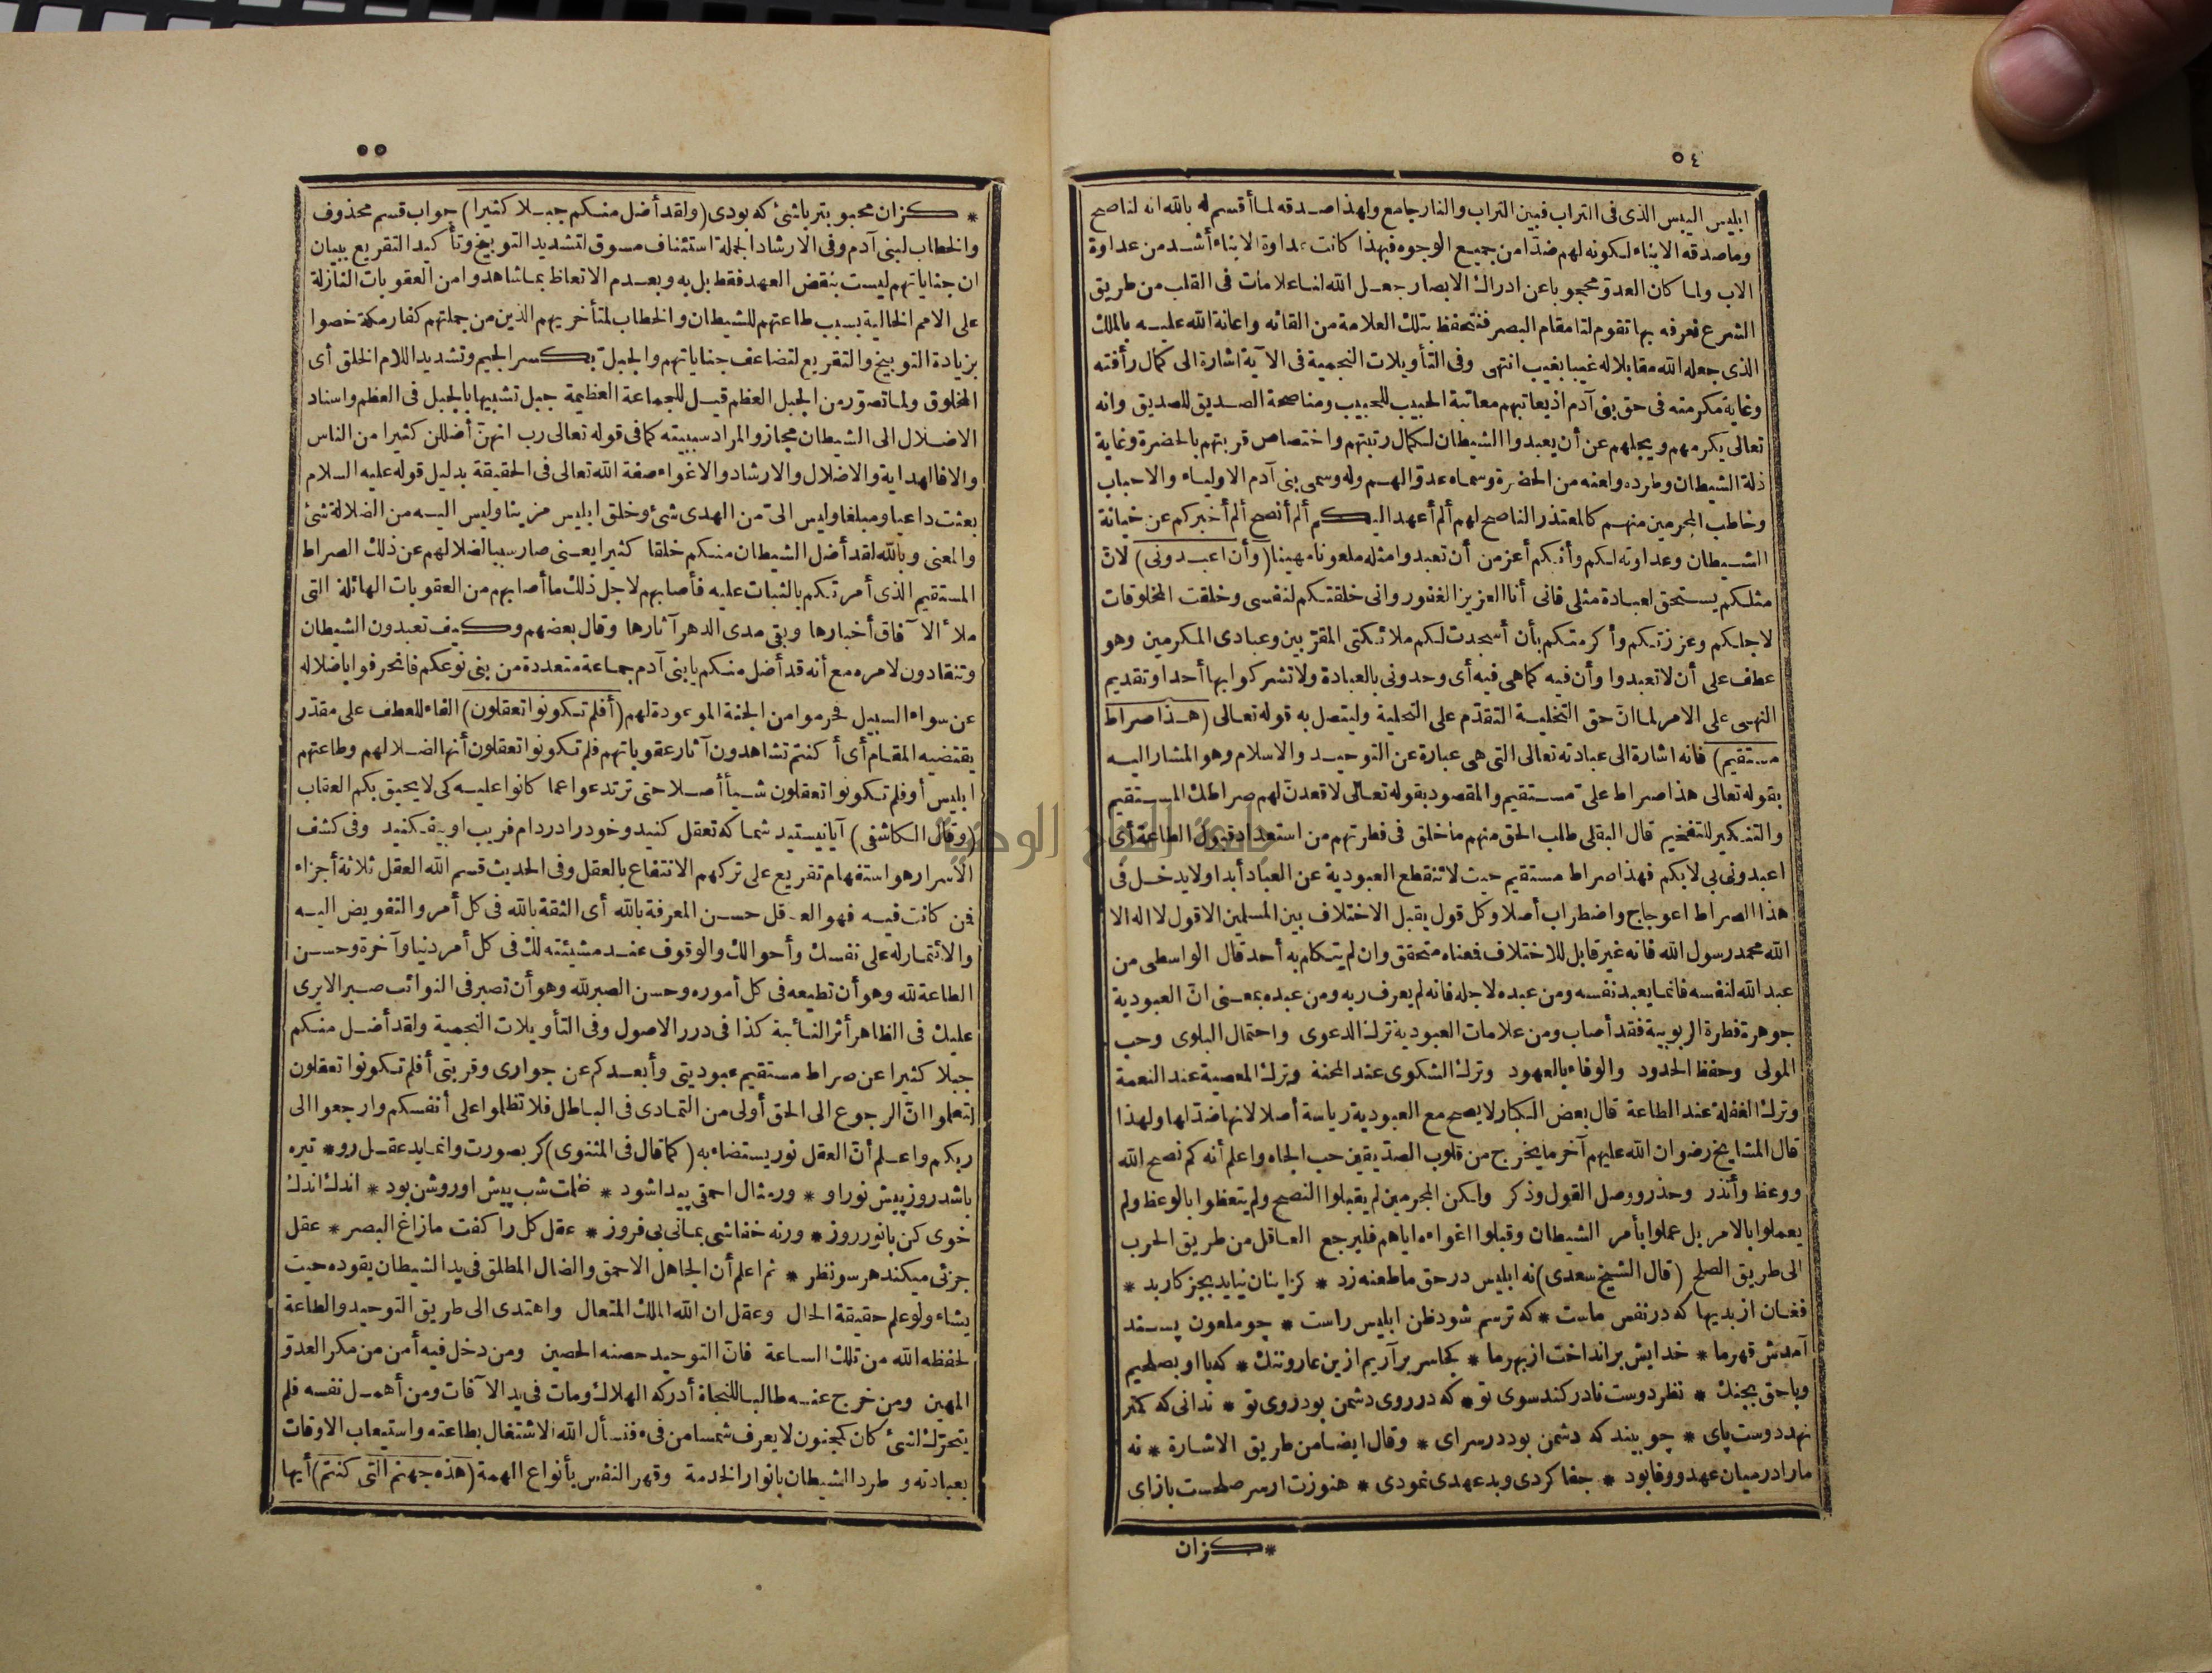 ٥٤
ابليس اليبس الذى فى التراب فبين التراب والنار جامع ولهذا صدقه لما أقسم له بالله انه لناصح
وما صدقه الابناء لكونه لهم ضدّا من جميع الوجوه فبهذا كانت عداوة الابناء أشد من عداوة
الاب ولما كان العدوّ محجوبا عن ادراك الابصار جعل الله لنا علامات فى القلب من طريق
الشرع نعرفه بها تقوم لنا مقام البصر فنتحفظ بتلك العلامة من القائه واعانة الله عليه بالملك
الذى جعله الله مقابلا له غيبا بغيب انتهى وفى التأويلات النجمية فى الآية اشارة الى كمال رأفته
وغاية مكرمته فى حق بنى آدم اذ يعاتبهم معاتبة الحبيب للحبيب ومناصحة الصديق للصديق وانه
تعالى يكرمهم ويجلهم عن أن يعبدوا الشيطان لكمال رتبتهم واختصاص قربتهم بالحضرة وغاية
ذلة الشيطان وطرده ولعنه من الحضرة وسماه عدوّا لهم وله وسمى بنى آدم الاولياء والاحباب
وخاطب المجرمين منهم كالمعتذر الناصح لهم ألم أعهد اليكم ألم أنصح ألم أخبركم عن خيانة
الشيطان وعداوته لكم وأنكم أعز من أن تعبدوا مثله ملعونا مهينا (وأن اعبدونى) لانّ
مثلكم يستحق لعبادة مثلى فانى أنا العزيز الغفور وانى خلقتكم لنفسى وخلقت المخلوقات
لاجلكم وعززتكم وأكرمتكم بأن أسجدت لكم ملائكتى المقرّبين وعبادى المكرمين وهو
عطف على أن لا تعبدوا وأن فيه كما هى فيه أى وحدونى بالعبادة ولا تشركوا بها أحدا وتقديم
النهى على الامر لما انّ حق التخلية التقدّم على التحلية وليتصل به قوله تعالى (هذا صراط
مستقيم) فانه اشارة الى عبادته تعالى التى هى عبارة عن التوحيد والاسلام وهو المشار اليه
بقوله تعالى هذا صراط علىّ مستقيم والمقصود بقوله تعالى لاقعدنّ لهم صراطك المستقيم
والتنكير للتفخيم قال البقلى طلب الحق منهم ما خلق فى فطرتهم من استعداد قبول الطاعة أى
اعبدونى بى لا بكم فهذا صراط مستقيم حيث لا تنقطع العبودية عن العباد أبدا ولا يدخل فى
هذا الصراط اعوجاج واضطراب أصلا وكل قول يقبل الاختلاف بين المسلمين الا قول لا اله الا
الله محمد رسول الله فانه غير قابل للاختلاف فمعناه متحقق وان لم يتكلم به أحد قال الواسطى من
عبد الله لنفسه فانما يعبد نفسه ومن عبده لاجله فانه لم يعرف ربه ومن عبده بمعنى انّ العبودية
جوهرة فطرة الربوبية فقد أصاب ومن علامات العبودية ترك الدعوى واحتمال البلوى وحب
المولى وحفظ الحدود والوفاء بالعهود وترك الشكوى عند المحنة وترك المعصية عند النعمة
وترك الغفلة عند الطاعة قال بعض الكبار لا يصح مع العبودية رياسة أصلا لانها ضدّ لها ولهذا
قال المشايخ رضوان الله عليهم آخر ما يخرج من قلوب الصدّيقين حب الجاه واعلم أنه كم نصح الله
ووعظ وأنذر وحذر ووصل القول وذكر ولكن المجرمين لم يقبلوا النصح ولم يتعظوا بالوعظ ولم
يعملوا بالامر بل عملوا بأمر الشيطان وقبلوا اغواءه اياهم فليرجع العاقل من طريق الحرب
الى طريق الصلح (قال الشيخ سعدى) نه ابليس در حق ما طعنه زد * كزاينان نيايد بجز كار بد *
فغان از بديها كه در نفس ماست * كه ترسم شود ظن ابليس راست * چو ملعون پسند
آمدش قهر ما * خدايش برانداخت از بهر ما * كجا سر برآريم ازين عار وننك * كه با او بصلحيم
وبا حق بجنك * نظر دوست نادر كند سوى تو * كه در روى دشمن بود روى تو * ندانى كه كمتر
نهد دوست پاى * چو بيند كه دشمن بود در سراى * وقال ايضا من طريق الاشارة * نه
مارا درميان عهد ووفا بود * جفا كردى وبد عهدى نمودى * هنوزت ار سر صلحست بازاى
* كزان
٥٥
* كزان محبوبتر باشئ كه بودى (ولقد أضل منكم جبلا كثيرا) جواب قسم محذوف
والخطاب لبنى آدم وفى الارشاد الجملة استئناف مسوق لتشديد التوبيخ وتأكيد التقريع ببيان
ان جناياتهم ليست بنقض العهد فقط بل به وبعدم الاتعاظ بما شاهدوا من العقوبات النازلة
على الامم الخالية بسبب طاعتهم للشيطان والخطاب لمتأخريهم الذين من جملتهم كفار مكة خصوا
بزيادة التوبيخ والتقريع لتضاعف جناياتهم والجبلّ بكسر الجيم وتشديد اللام الخلق أى
المخلوق ولما تصوّر من الجبل العظم قيل للجماعة العظيمة جبل تشبيها بالجبل فى العظم واسناد
الاضلال الى الشيطان مجاز والمراد سببيته كما فى قوله تعالى رب انهنّ أضللن كثيرا من الناس
والا فالهداية والاضلال والارشاد والاغواء صفة الله تعالى فى الحقيقة بدليل قوله عليه السلام
بعثت داعيا ومبلغا وليس الىّ من الهدى شئ وخلق ابليس مزينا وليس اليه من الضلالة شئ
والمعنى وبالله لقد أضل الشيطان منكم خلقا كثيرا يعنى صار سببا لضلالهم عن ذلك الصراط
المستقيم الذى أمرتكم بالثبات عليه فأصابهم لاجل ذلك ما أصابهم من العقوبات الهائلة التى
ملأ الآفاق أخبارها وبقى مدى الدهر آثارها وقال بعضهم وكيف تعبدون الشيطان
وتنقادون لامره مع أنه قد أضل منكم يا بنى آدم جماعة متعددة من بنى نوعكم فانحرفوا باضلاله
عن سواء السبيل فحرموا من الجنة الموعودة لهم (أفلم تكونوا تعقلون) الفاء للعطف على مقدّر
يقتضيه المقام أى أ كنتم تشاهدون آثار عقوباتهم فلم تكونوا تعقلون أنها لضلالهم وطاعتهم
ابليس أو فلم تكونوا تعقلون شيأ أصلا حتى ترتدعوا عما كانوا عليه كى لا يحيق بكم العقاب
(وقال الكاشفى) آيا نيستيد شما كه تعقل كنيد وخودرا در دام فريب او بيفكنيد وفى كشف
الاسرار هو استفهام تقريع على تركهم الانتفاع بالعقل وفى الحديث قسم الله العقل ثلاثة أجزاء
فمن كانت فيه فهو العاقل حسن المعرفة بالله أى الثقة بالله فى كل أمر والتفويض اليه
والائتمار له على نفسك وأحوالك والوقوف عند مشيئته لك فى كل أمر دنيا وآخرة وحسن
الطاعة لله وهو أن تطيعه فى كل أموره وحسن الصبر لله وهو أن تصبر فى النوائب صبرا لا يرى
عليك فى الظاهر أثر النائبة كذا فى درر الاصول وفى التأويلات النجمية ولقد أضل منكم
جبلا كثيرا عن صراط مستقيم عبوديتى وأبعدكم عن جوارى وقربتى أفلم تكونوا تعقلون
لتعلموا انّ الرجوع الى الحق أولى من التمادى فى الباطل فلا تظلموا على أنفسكم وارجعوا الى
ربكم واعلم أنّ العقل نور يستضاء به (كما قال فى المثنوى) كر بصورت وانمايد عقل رو * تيره
باشد روز پيش نور او * ور مثال احمقى پيدا شود * ظلمت شب پيش او روشن بود * اندك اندك
خوى كن با نور روز * ورنه خفاشى بمانى بى فروز * عقل كل را كفت ما زاغ البصر * عقل
جزئى ميكند هر سو نظر * ثم اعلم أن الجاهل الاحمق والضال المطلق فى يد الشيطان يقوده حيث
يشاء ولو علم حقيقة الحال وعقل ان الله الملك المتعال واهتدى الى طريق التوحيد والطاعة
لحفظه الله من تلك الساعة فانّ التوحيد حصنه الحصين ومن دخل فيه أمن من مكر العدوّ
المهين ومن خرج عنه طالبا للنجاة أدركه الهلاك ومات فى يد الآفات ومن أهمل نفسه فلم
يتحرّك لشئ كان كمجنون لا يعرف شمسا من فىء فنسأل الله الاشتغال بطاعته واستيعاب الاوقات
بعبادته وطرد الشيطان بانوار الخدمة وقهر النفس بأنواع الهمة (هذه جهنم التى كنتم) أيها